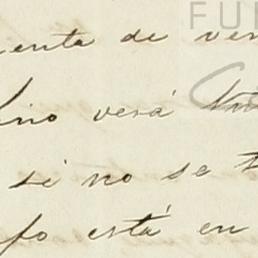 FU
ienta de ver
ino verá
si no se t
fo está en